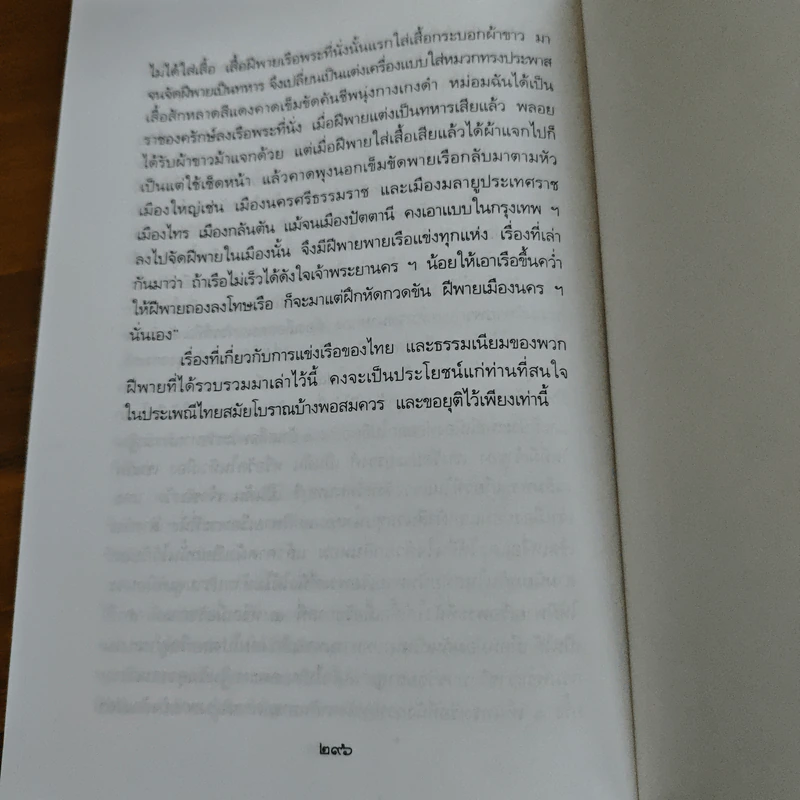 ไม่ได้ใส่เสื้อ เสื้อฝีพายเรือพระที่นั่งนั้นแรกใส่เสื้อกระบอกผ้าขาว มา
จนจัดฝีพายเป็นทหาร จึงเปลี่ยนเป็นแต่งเครื่องแบบใส่หมวกทรงประพาส
เสื้อสักหลาดสีแดงคาดเข็มขัดคันชีพนุ่งกางเกงดำ หม่อมฉันได้เป็น
ราชองครักษ์ลงเรือพระที่นั่ง เมื่อฝีพายแต่งเป็นทหารเสียแล้ว พลอย
ได้รับผ้าขาวม้าแจกด้วย แต่เมื่อฝีพายใส่เสื้อเสียแล้วได้ผ้าแจกไปก็
เป็นแต่ใช้เช็ดหน้า แล้วคาดพุงนอกเข็มขัดพายเรือกลับมาตามหัว
เมืองใหญ่เช่น เมืองนครศรีธรรมราช และเมืองมลายูประเทศราช
เมืองไทร เมืองกลันตัน แม้จนเมืองปัตตานี คงเอาแบบในกรุงเทพ ฯ
ลงไปจัดฝีพายในเมืองนั้น จึงมีฝีพายพายเรือแข่งทุกแห่ง เรื่องที่เล่า
กันมาว่า ถ้าเรือไม่เร็วได้ดังใจเจ้าพระยานคร ฯ น้อยให้เอาเรือขึ้นคว่ำ
ให้ฝีพายถองลงโทษเรือ ก็จะมาแต่ฝึกหัดกวดขัน ฝีพายเมืองนคร ฯ
นั่นเอง"
เรื่องที่เกี่ยวกับการแข่งเรือของไทย และธรรมเนียมของพวก
ฝีพายที่ได้รวบรวมมาเล่าไว้นี้ คงจะเป็นประโยชน์แก่ท่านที่สนใจ
ในประเพณีไทยสมัยโบราณบ้างพอสมควร และขอยุติไว้เพียงเท่านี้
๒๙๖